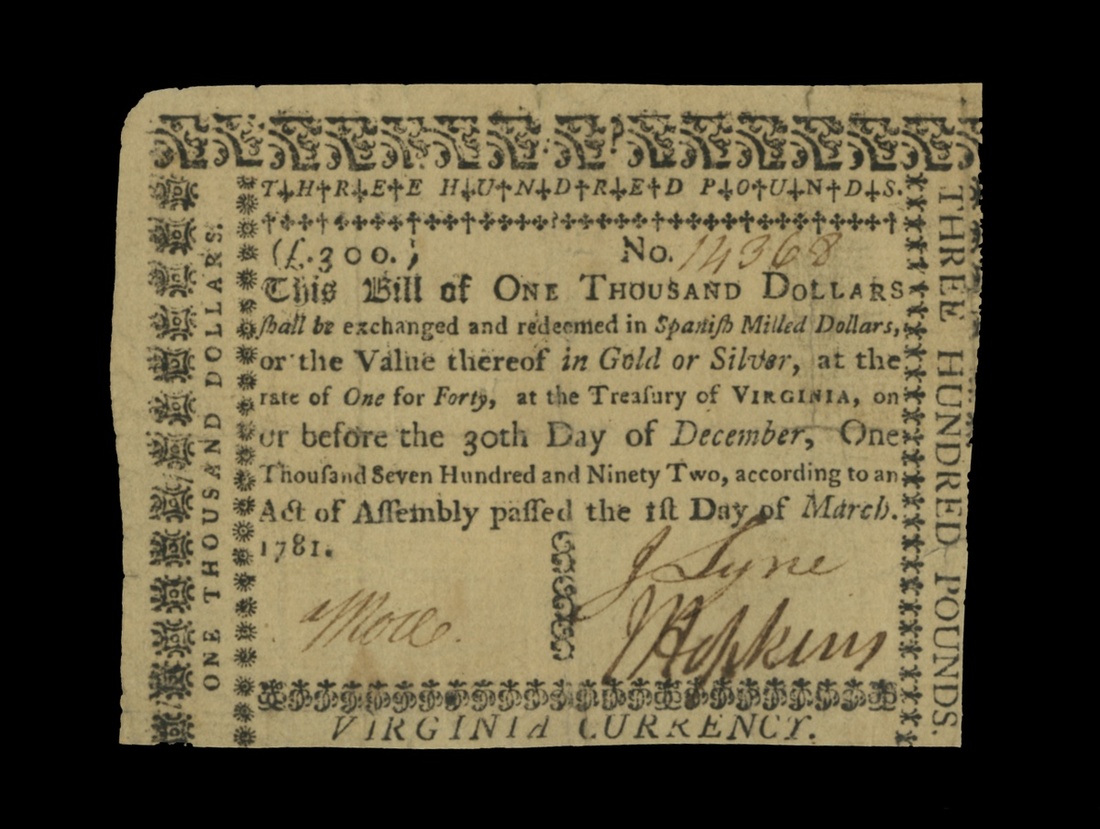 T‡H†R‡E†E H‡U†N‡D†R‡E†D P‡O†U‡N†D‡S.
(£.300.)
No. 14368
This Bill of ONE THOUSAND DOLLARS
ſhall be exchanged and redeemed in Spaniſh Milled Dollars,
or the Value thereof in Gold or Silver, at the
rate of One for Forty, at the Treaſury of VIRGINIA, on
or before the 30th Day of December, One
Thouſand Seven Hundred and Ninety Two, according to an
Act of Aſſembly paſſed the 1ſt Day of March.
1781.
J Lyne
J Hopkins
VIRGINIA CURRENCY.
ONE THOUSAND DOLLARS.
THREE HUNDRED POUNDS.